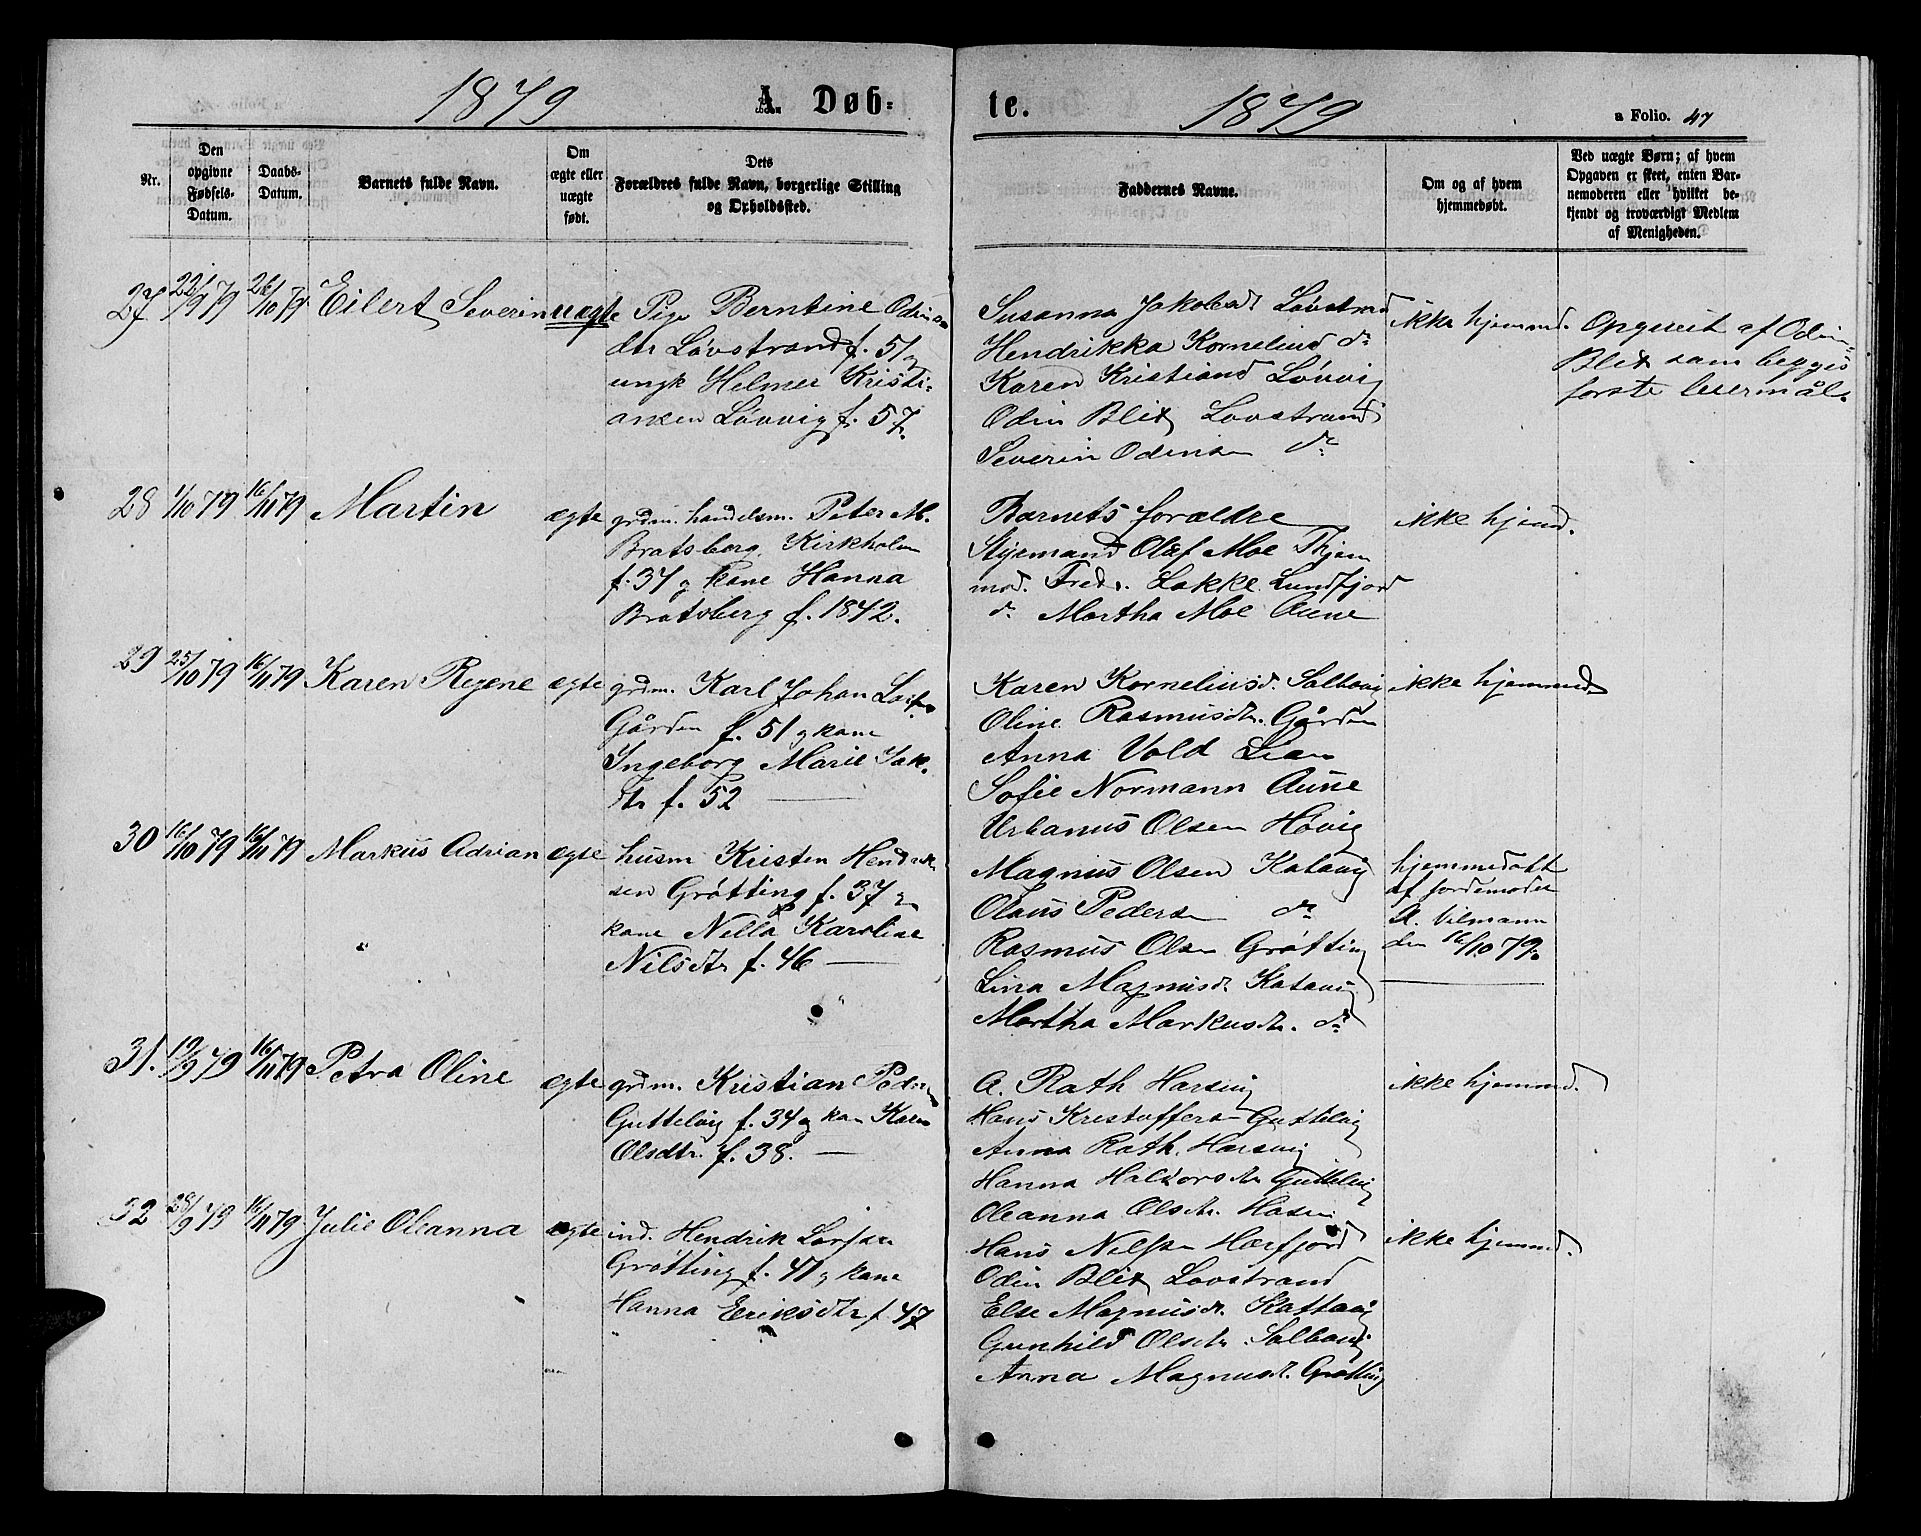 1879 A. Døb-
te. 1879 a Folio. 47
Nr.
Den opgivne Fødsels-Datum.
Daabs-Datum.
Barnets fulde Navn.
Om ægte eller uægte født.
Dets Forældres fulde Navn, borgerlige Stilling og Opholdssted.
Faddernes Navne.
Om og af hvem hjemmedøbt.
Ved uægte Børn; af hvem Opgaven er skeet, enten Barnemoderen eller hvilket bekjendt og troværdigt Medlem af Menigheden.
27 22/9 79 26/10 79 Eilert Severin uægte Pige Berntine Odins
dtr Løvstrand f. 51 g
ungk Helmer Kristi-
ansen Løvvig f. 57.
Susanna Jakobsd. Løvstrand
Hendrikka Kornelius do
Karen Kristiansd Løvvig
Odin Blix Lovstrand
Severin Odinsen do
ikke hjemmd.
Opgivet af Odin
Blix som begges
første leiermål.
28 1/10 79 16/11 79 Martin ægte grdm. handelsm. Peter M.
Bratsberg, Kirkholm
f. 37 g kone Hanna
Bratsberg f. 1842.
Barnets forældre
Styrmand Olaf Moe
Fred. Lakke Lundfjord
do Martha Moe Aune
ikke hjemd.
29 25/10 79 16/11 79 Karen Regine ægte grdm. Karl Johan
Gården f. 51 g kone
Ingeborg Marie Jak.
dtr f. 52
Karen Korneliusd. Salbovig
Oline Rasmusdtr. Gården
Anna Vold Lian
Sofie Normann Aune
Urbanus Olsen Høvig
ikke hjemmd
30 16/10 79 16/11 79 Markus Adrian ægte husm Kristen Hendrik
sen Grøtting f. 37 g
kone Nella Karoline
Nilsdtr f. 46
Magnus Olsen Katavig
Olaus Pedersen do
Rasmus Olsen Grøtting
Lina Magnusd. Katavig
Martha Markusdtr. do
hjemmedøbt
af jordemoder
A. Vilmann
den 16/10 79.
31. 19/9 79 16/11 79 Petra Oline ægte grdm. Kristian Peders
Guttelvig f. 34 g kone Karen
Olsdtr. f. 38.
A. Rath Harsvig
Hans Kristoffersen Guttelvig
Anna Rath. Harsvig
Hanna Haldorsdtr Guttelvig
Oleanna Olsdtr.
ikke hjemmd.
32 28/9 79 16/11 79 Julie Oleanna ægte ind. Hendrik Larssen
Grøtting f. 41 g kone
Hanna Eriksdtr f 47
Hans Nilssen Hærfjord
Odin Blix Lovstrand
Else Magnusdr. Kattavig
Gunhild Olsdtr. Salbovig
Anna Magnusd. Grøtting
ikke hjemmd.